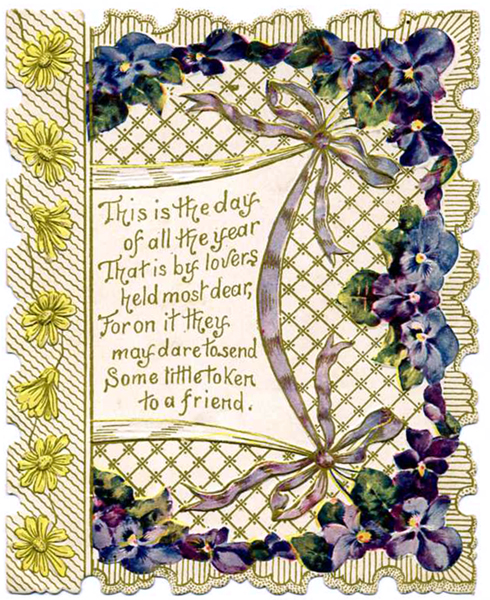 This is the day
of all the year
That is by lovers
held most dear,
For on it they
may dare to send
Some little token
to a friend.